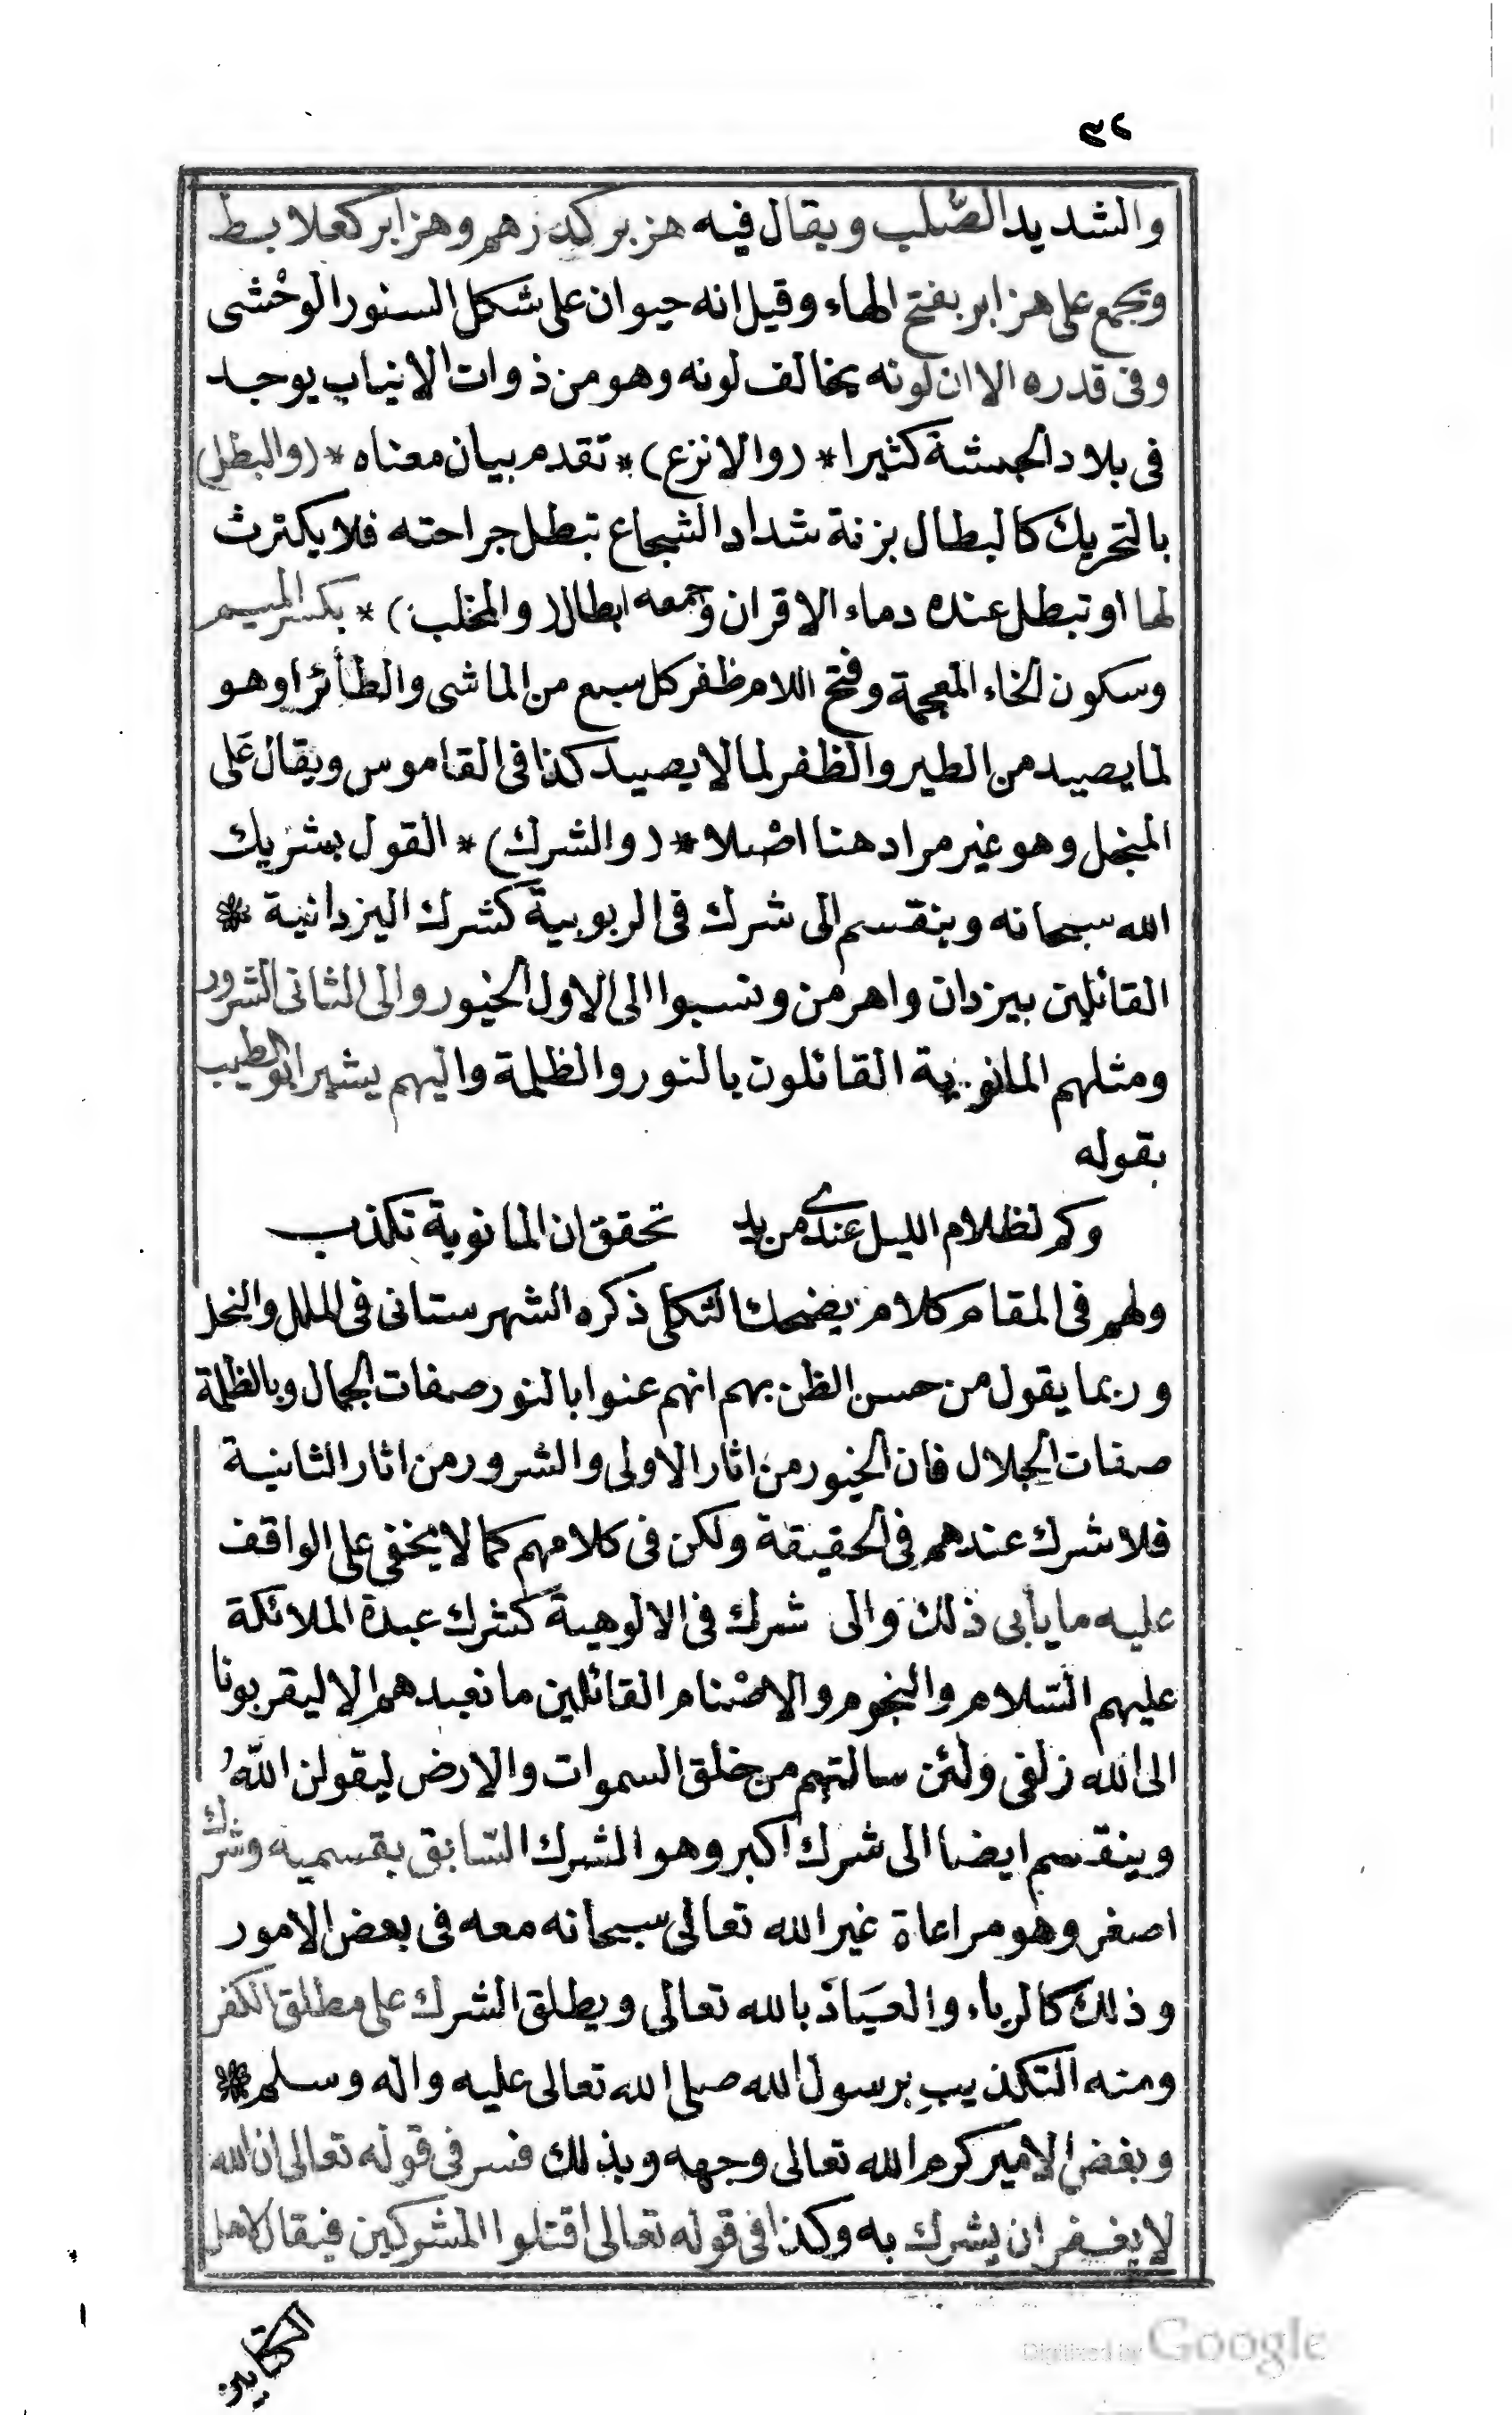 ٣٢
والشديد الصّلب ويقال فيه هزبر كدرهم وهزابر كعلابط
وتجمع على هزابر بفتح الهاء وقيل انه حيوان على شكل السنور الوحْشى
وفى قدره الا ان لونه يخالف لونه وهو من ذوات الانياب يوجد
فى بلاد الحبشة كثيرا * (والانزع) * تقدم بيان معناه * (والبطل)
بالتحريك كالبطال بزنة شداد الشجاع تبطل جراحته فلا يكترث
لها او تبطل عنده دماء الاقران وجمعه ابطال (والمخلب) * بكسر الميم
وسكون الخاء المعجمة وفتح اللام ظفر كل سبع من الماشى والطائر او هو
لما يصيد من الطير والظفر لما لا يصيد كذا فى القاموس ويقال على
المنجل وهو غير مراد هنا اصْلا * (والشرك) * القول بشريك
الله سبحانه وينقسم الى شرك فى الربوبية كشرك اليزدانية *
القائلين بيزدان واهرمن ونسبوا الى الاول الخيور والى الثانى الشرور
ومثلهم المانوية القائلون بالنور والظلمة واليهم يشير ابو الطيب
بقوله
وكم لظلام الليل عندى من يد تحقق ان المانوية تكذب
ولهم فى المقام كلام يضحك الثكلى ذكره الشهرستانى فى الملل والنحل
وربما يقول من حسن الظن بهم انهم عنوا بالنور صفات الجمال وبالظلمة
صفات الجلال فان الخيور من اثار الاولى والشرور من اثار الثانية
فلا شرك عندهم فى الحقيقة ولكن فى كلامهم كما لا يخفى على الواقف
عليه ما يأبى ذلك والى شرك فى الالوهية كشرك عبدة الملائكة
عليهم السّلام والنجوم والاصْنام القائلين ما نعبدهم الا ليقربونا
الى الله زلفى ولئن سالتهم من خلق السموات والارض ليقولن اللهُ
وينقسم ايضا الى شرك اكبر وهو الشرك السّابق بقسميه وشرك
اصغر وهو مراعاة غير الله تعالى سبحانه معه فى بعض الامور
وذلك كالرياء والعيَاذ بالله تعالى ويطلق الشرك على مطلق الكفر
ومنه التكذيب برسول الله صلى الله تعالى عليه واله وسلم *
وبغض الامير كرم الله تعالى وجهه وبذلك فسر فى قوله تعالى ان الله
لا يغفر ان يشرك به وكذا فى قوله تعالى اقتلوا المشركين فيقال لاهل
الكتابين
Digitized by Google